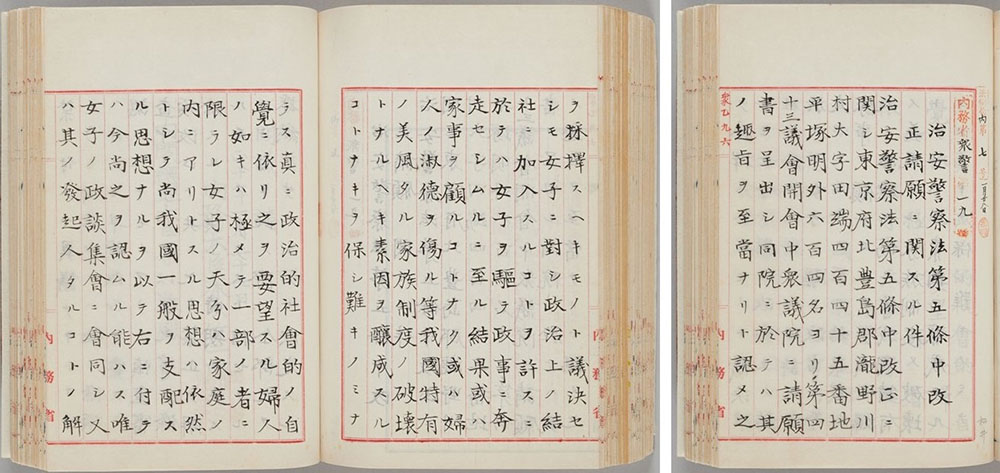 内務省衆警一九
治安警察法第五條中改
正請願ニ関スル件
治安警察法第五條中改正ニ
関シ東京府北豊島郡瀧野川
村大字田端四百四十五番地
平塚明外六百四名ヨリ第四
十三議會開會中衆議院ニ請願
書ヲ呈出シ同院ニ於テハ其
ノ趣旨ヲ至當ナリト認メ之
衆乙九六
内務省
ヲ採擇スヘキモノト議決セ
シモ女子ニ對シ政治上ノ結
社ニ加入スルコトヲ許スニ
於テハ女子ヲ驅テ政事ニ奔
走セシムルニ至ル結果或ハ
家事ヲ顧ルコトナク或ハ婦
人ノ淑德ヲ傷ル等我國特有
ノ美風タル家族制度ノ破壊
トナルヘキ素因ヲ醸成スル
コトナキヲ保シ難キノミナ
内務省
ラス真ニ政治的社會的ノ自
覺ニ依リ之ヲ要望スル婦人
ノ如キハ極メテ一部ノ者ニ
限ラレ女子ノ天分ハ家庭ノ
内ニアリトスル思想ハ依然
トシテ尚我國一般ヲ支配ス
ル思想ナルヲ以テ右ニ付テ
ハ今尚之ヲ認ムル能ハス唯
女子ノ政談集會ニ會同シ又
ハ其ノ發起人タルコトノ解
内務省